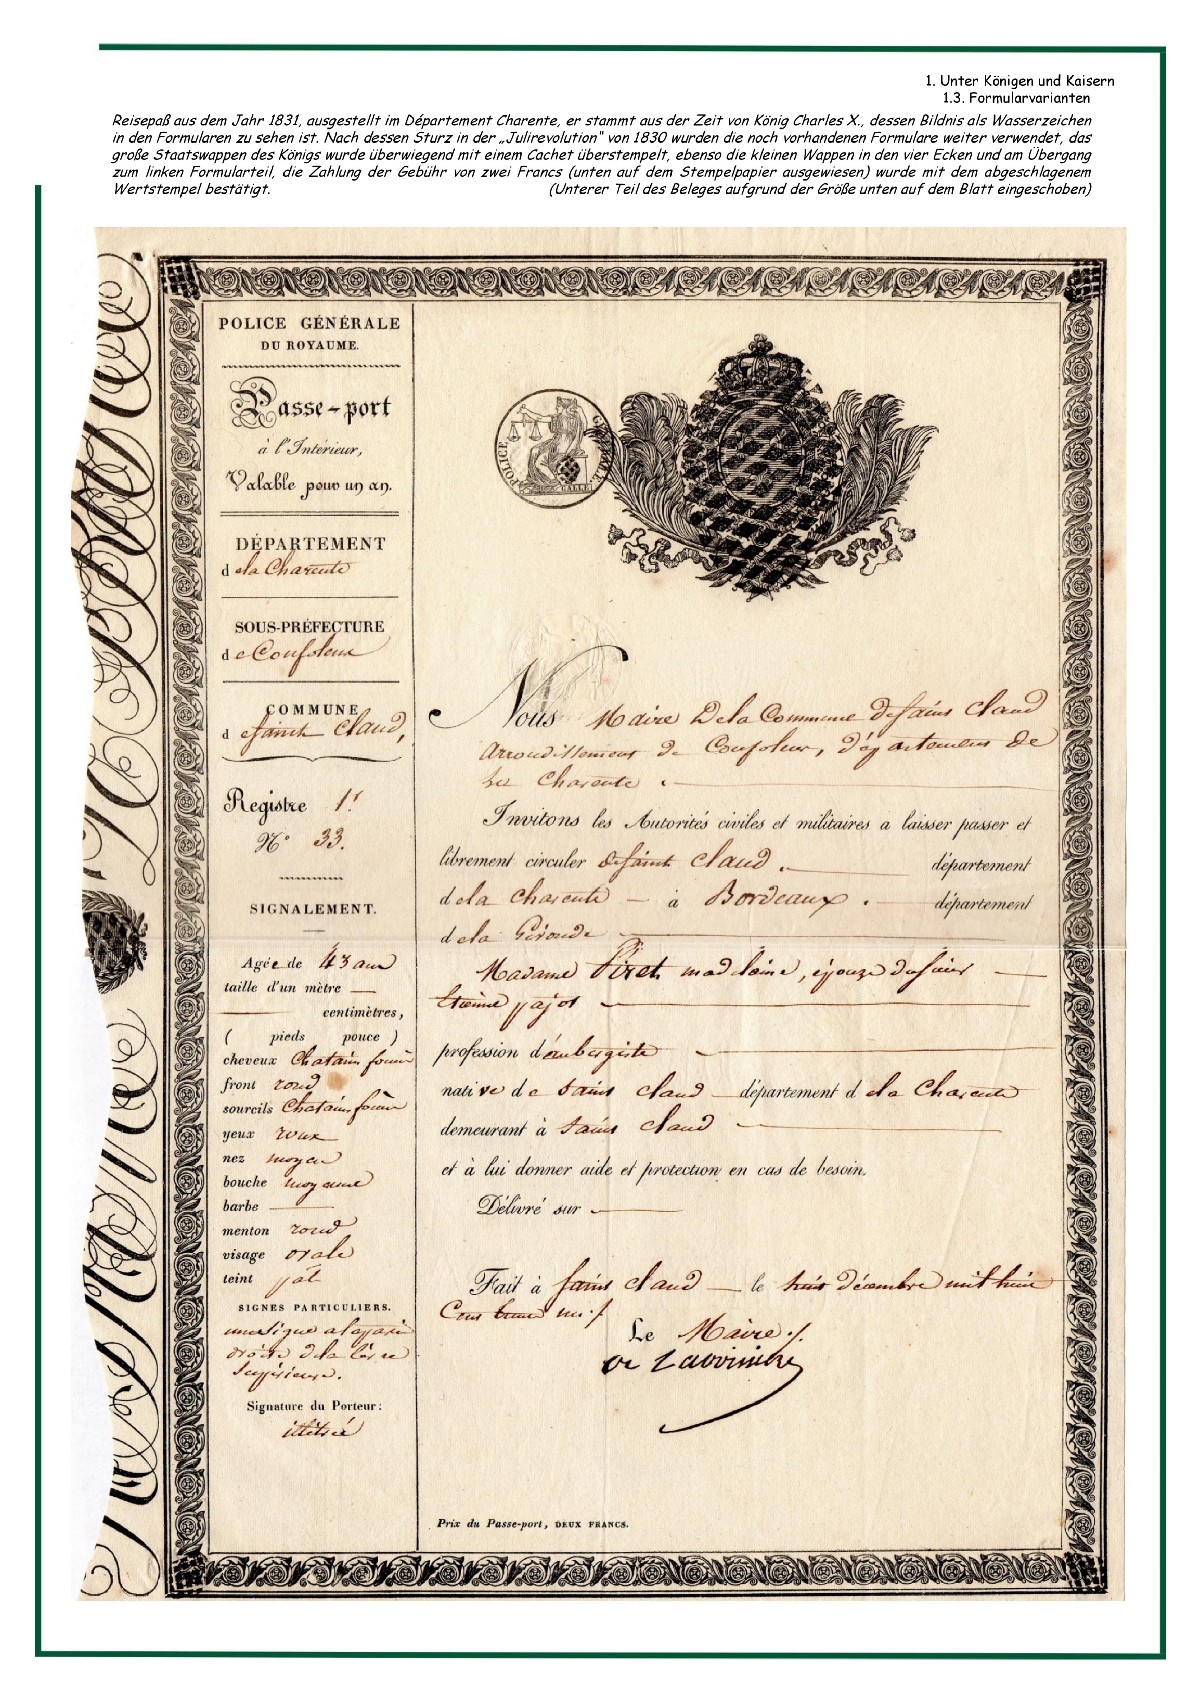 1. Unter Königen und Kaisern
1.3. Formularvarianten
Reisepaß aus dem Jahr 1831, ausgestellt im Département Charente, er stammt aus der Zeit von König Charles X., dessen Bildnis als Wasserzeichen
in den Formularen zu sehen ist. Nach dessen Sturz in der „Julirevolution“ von 1830 wurden die noch vorhandenen Formulare weiter verwendet, das
große Staatswappen des Königs wurde überwiegend mit einem Cachet überstempelt, ebenso die kleinen Wappen in den vier Ecken und am Übergang
zum linken Formularteil, die Zahlung der Gebühr von zwei Francs (unten auf dem Stempelpapier ausgewiesen) wurde mit dem abgeschlagenem
Wertstempel bestätigt. (Unterer Teil des Beleges aufgrund der Größe unten auf dem Blatt eingeschoben)
POLICE GÉNÉRALE
DU ROYAUME.
Passe-port
à l'Intérieur,
Valable pour un an.
DÉPARTEMENT
de la Charente
SOUS-PRÉFECTURE
de Confolens
COMMUNE
de Saint Claud,
Registre 1.r
N.o 33.
SIGNALEMENT.
Agée de 43 ans
taille d'un mètre
centimètres,
( pieds pouce )
cheveux Chatain
front rond
sourcils Chatain
yeux roux
nez moyen
bouche moyenne
barbe
menton rond
visage ovale
teint
SIGNES PARTICULIERS.
droite de la lèvre
Supérieure.
Signature du Porteur:
POLICE GÉNÉRALE.
Nous Maire De la Commune de Saint Claud
Arrondissement de Confolens, département de
la Charente
Invitons les Autorités civiles et militaires a laisser passer et
librement circuler de Saint Claud. département
de la Charente à Bordeaux. département
de la Gironde
Madame Piret madelaine, épouze du sieur
pajot
profession d'aubergiste
native de Saint Claud département de la Charente
demeurant à Saint Claud
et à lui donner aide et protection en cas de besoin.
Délivré sur
Fait à Saint Claud le huit décembre mil huit
Cent trente un
Le Maire
Prix du Passe-port, DEUX FRANCS.